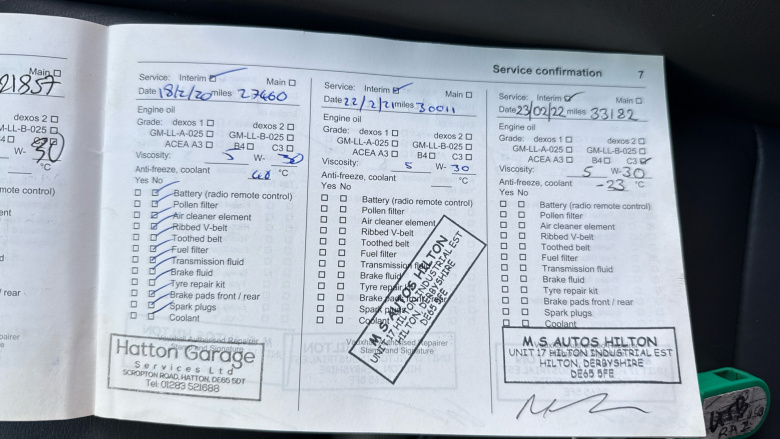 Main ☐
21857
dexos 2 ☐
M-LL-B-025 ☐
C3 ☐
W- 30
°C
mote control)
/ rear
Service confirmation 7
Service: Interim ☑ Main ☐
Date 18/2/20 miles 27460
Engine oil
Grade: dexos 1 ☐ dexos 2 ☐
GM-LL-A-025 ☐ GM-LL-B-025 ☐
ACEA A3 ☐ B4 ☐ C3 ☐
Viscosity: 5 W- 30
Anti-freeze, coolant °C
Yes No
☐ ☑ Battery (radio remote control)
☐ ☑ Pollen filter
☐ ☑ Air cleaner element
☐ ☑ Ribbed V-belt
☐ ☑ Toothed belt
☐ ☑ Fuel filter
☐ ☑ Transmission fluid
☐ ☑ Brake fluid
☐ ☑ Tyre repair kit
☐ ☑ Brake pads front / rear
☐ ☑ Spark plugs
☐ ☐ Coolant
Hatton Garage
Services Ltd
SCROPTON ROAD, HATTON, DE65 5DT
Tel: 01283 521688
Service: Interim ☑ Main ☐
Date 22/2/21 miles 30011
Engine oil
Grade: dexos 1 ☐ dexos 2 ☐
GM-LL-A-025 ☐ GM-LL-B-025 ☐
ACEA A3 ☐ B4 ☐ C3 ☐
Viscosity: 5 W- 30
Anti-freeze, coolant °C
Yes No
☐ ☐ Battery (radio remote control)
☐ ☐ Pollen filter
☐ ☐ Air cleaner element
☐ ☐ Ribbed V-belt
☐ ☐ Toothed belt
☐ ☐ Fuel filter
☐ ☐ Transmission fluid
☐ ☐ Brake fluid
☐ ☐ Tyre repair kit
☐ ☐ Brake pads front / rear
☐ ☐ Spark plugs
☐ ☐ Coolant
Vauxhall Authorised Repairer
Stamp and Signature
M.S. AUTOS HILTON
UNIT 17 HILTON INDUSTRIAL EST
HILTON, DERBYSHIRE
DE65 5FE
Service: Interim ☑ Main ☐
Date 23/02/22 miles 33182
Engine oil
Grade: dexos 1 ☐ dexos 2 ☐
GM-LL-A-025 ☐ GM-LL-B-025 ☐
ACEA A3 ☐ B4 ☐ C3 ☑
Viscosity: 5 W-30
Anti-freeze, coolant -23 °C
Yes No
☐ ☐ Battery (radio remote control)
☐ ☐ Pollen filter
☐ ☐ Air cleaner element
☐ ☐ Ribbed V-belt
☐ ☐ Toothed belt
☐ ☐ Fuel filter
☐ ☐ Transmission fluid
☐ ☐ Brake fluid
☐ ☐ Tyre repair kit
☐ ☐ Brake pads front / rear
☐ ☐ Spark plugs
☐ ☐ Coolant
M.S. AUTOS HILTON
UNIT 17 HILTON INDUSTRIAL EST
HILTON, DERBYSHIRE
DE65 5FE